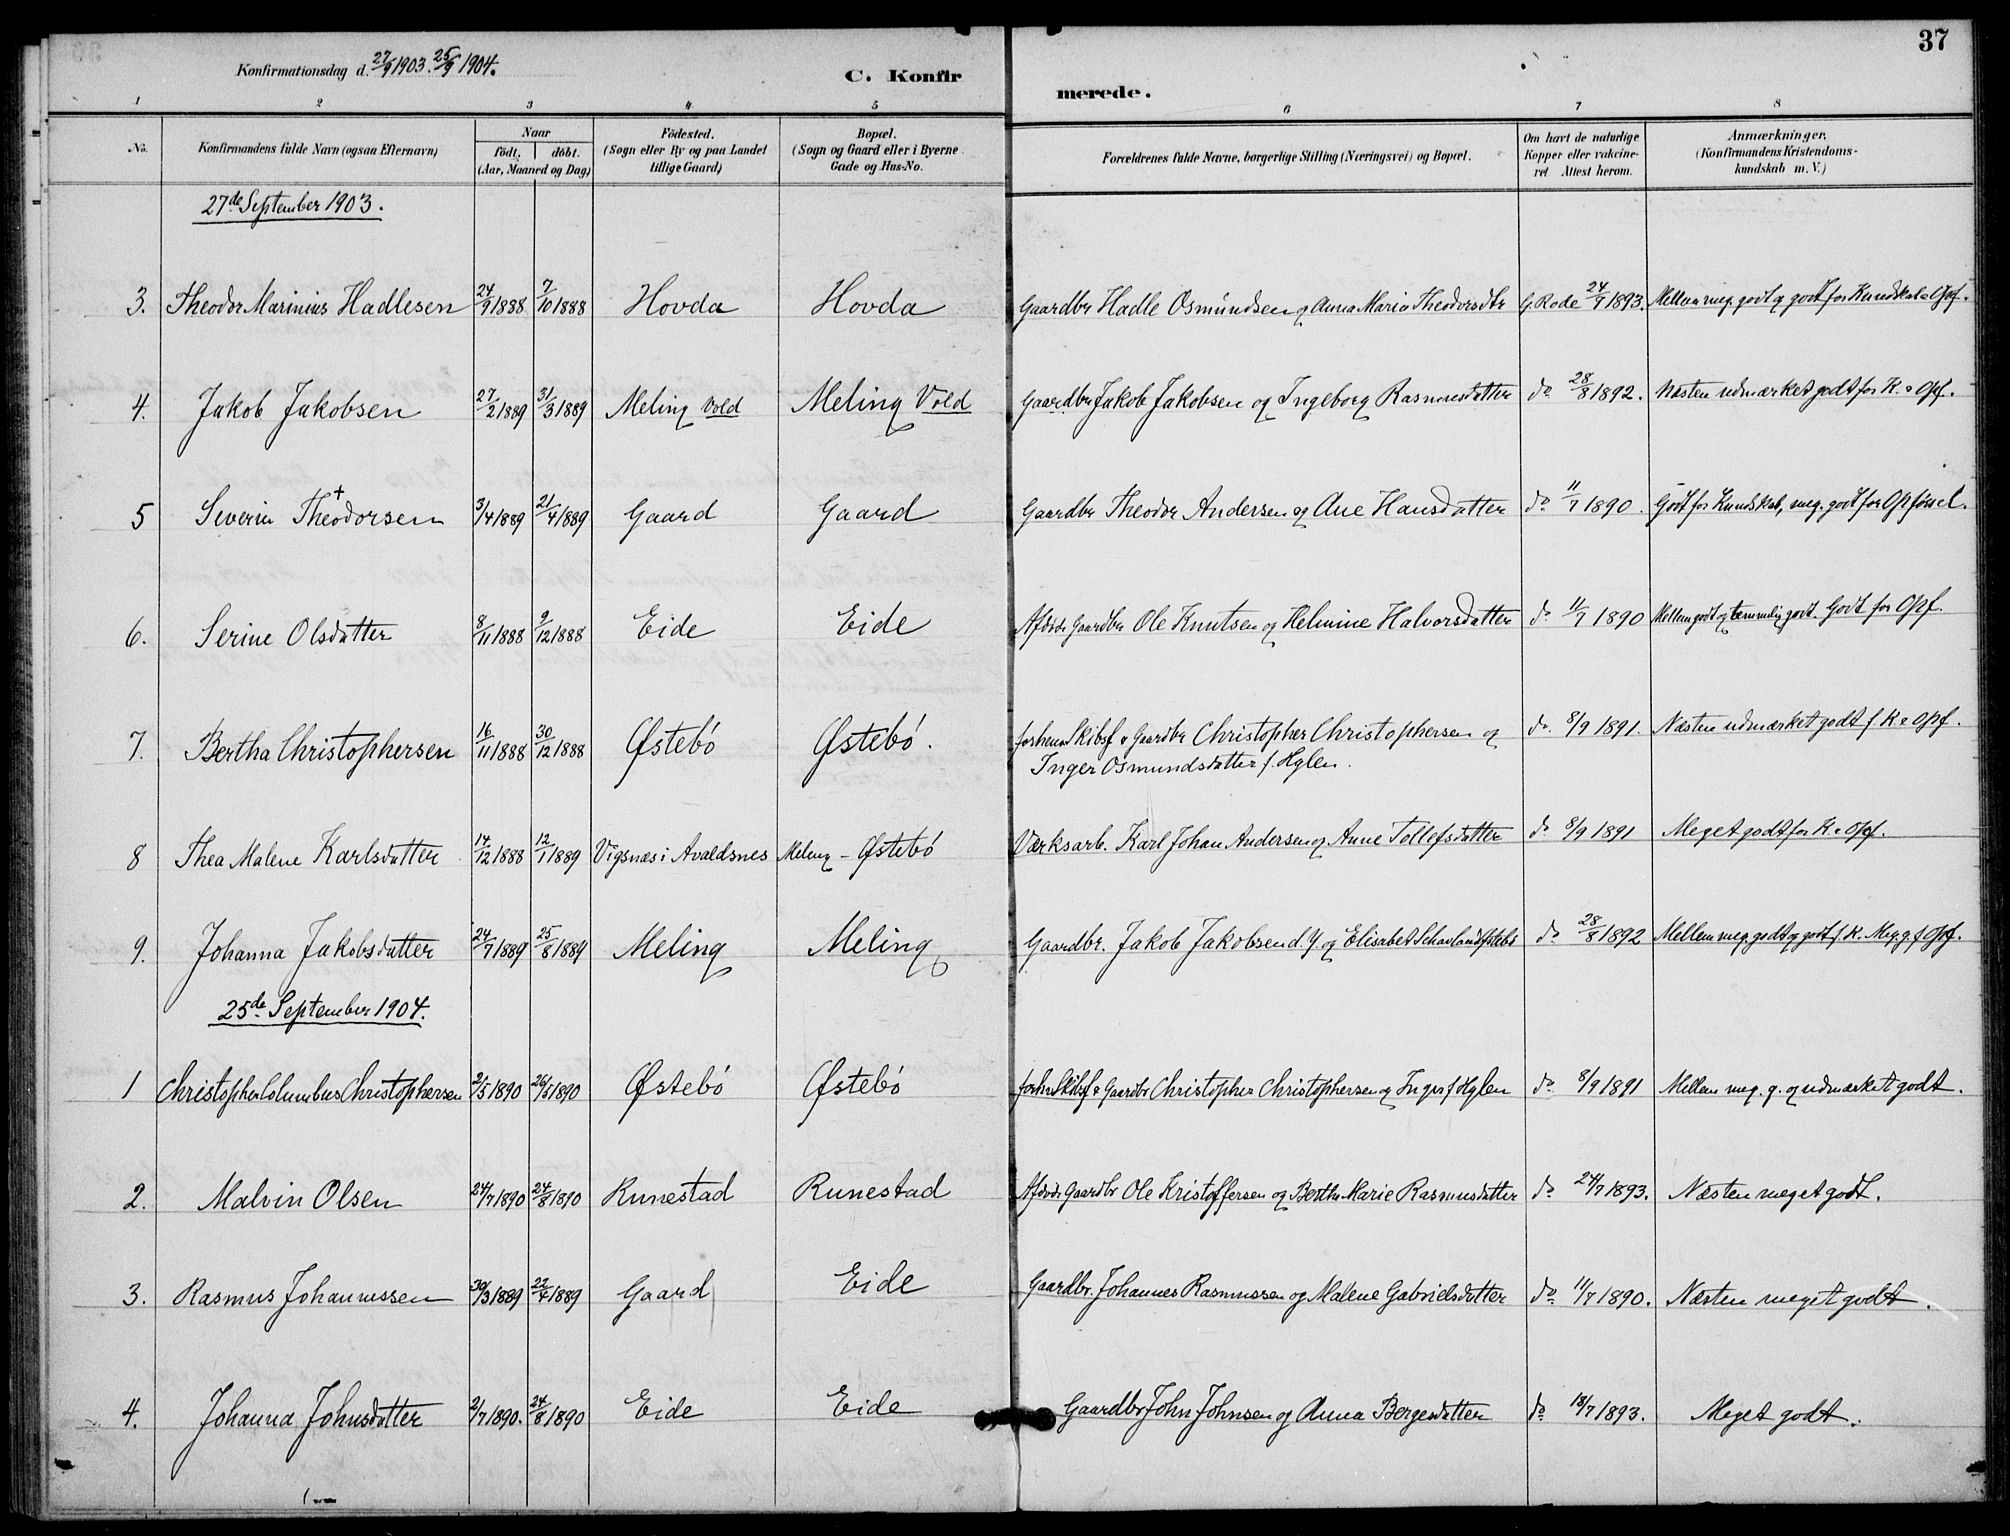 37
Konfirmationsdag d. 27/9 1903. 25/9 1904.
C. Konfirmerede.
1 2 3 4 5 6 7 8
No. | Konfirmandens fulde Navn (ogsaa Efternavn) | Naar født. | døbt. (Aar, Maaned og Dag) | Födested. (Sogn eller By og paa Landet tillige Gaard) | Bopæl. (Sogn og Gaard eller i Byerne Gade og Hus-No. | Forældrenes fulde Navne, borgerlige Stilling (Næringsvei) og Bopæl. | Om havt de naturlige Kopper eller vakcineret. Attest herom. | Anmærkninger. (Konfirmandens Kristendomskundskab m. V.)
27de September 1903.
3. Theodor Marinius Hadlesen 24/9 1888 7/10 1888 Hovda Hovda Gaardbr Hadle Osmundsen og Anna Maria Theodorsdtr G. Rode 24/9 1893. Mellem meg. godt og godt for Kundskab o Opf.
4. Jakob Jakobsen 27/2 1889 31/3 1889 Meling Vold Meling Vold Gaardbr Jakob Jakobsen og Ingeborg Rasmusdatter do 28/8 1892. Næsten udmærket godt for K. o Opf.
5 Severin Theodorsen 3/4 1889 21/4 1889 Gaard Gaard Gaardbr Theodor Andersen og Ane Hansdatter do 11/7 1890. Godt for Kundskab, meg. godt for Opførsel.
6. Serine Olsdatter 8/11 1888 9/12 1888 Eide Eide Afdøde Gaardbr Ole Knutsen og Helmine Halvorsdatter do 11/7 1890 Mellem godt og temmelig godt. Godt for Opf.
7. Bertha Christophersen 16/11 1888 30/12 1888 Østebö Østebö. forhen Skibsf o Gaardbr Christopher Christophersen og
Inger Osmundsdatter f. Hylen. do. 8/9 1891. Næsten udmærket godt f K o Opf.
8 Thea Malene Karlsdatter 14/12 1888 12/1 1889 Vigsnæs i Avaldsnes Meling - Østebö Værksarb. Karl Johan Andersen og Anne Tollefsdatter do 8/9 1891 Meget godt for K. o Opf.
9. Johanna Jakobsdatter 24/7 1889 25/8 1889 Meling Meling Gaardbr. Jakob Jakobsen d. y. og Elisabet do 28/8 1892 Mellem meg. godt og godt f. K. Meg. g. f Opf.
25de September 1904.
1 Christopher Columbus Christophersen 2/5 1890 26/5 1890 Østebö Østebö forhen Skibsf o Gaardbr Christopher Christophersen og Inger f Hylen do. 8/9 1891 Mellem meg. g. og udmærket godt.
2. Malvin Olsen 24/7 1890 24/8 1890 Runestad Runestad Afdøde Gaardbr Ole Kristoffersen og Bertha Marie Rasmusdatter do 24/7 1893. Næsten meget godt.
3. Rasmus Johannessen 30/3 1889 22/4 1889 Gaard Eide Gaardbr. Johannes Rasmussen og Malene Gabrielsdatter do. 11/7 1890. Næsten meget godt.
4. Johanna Johnsdatter 2/7 1890. 24/8 1890 Eide Eide Gaardbr John Johnsen og Anna Bergesdatter do 18/7 1893. Meget godt.